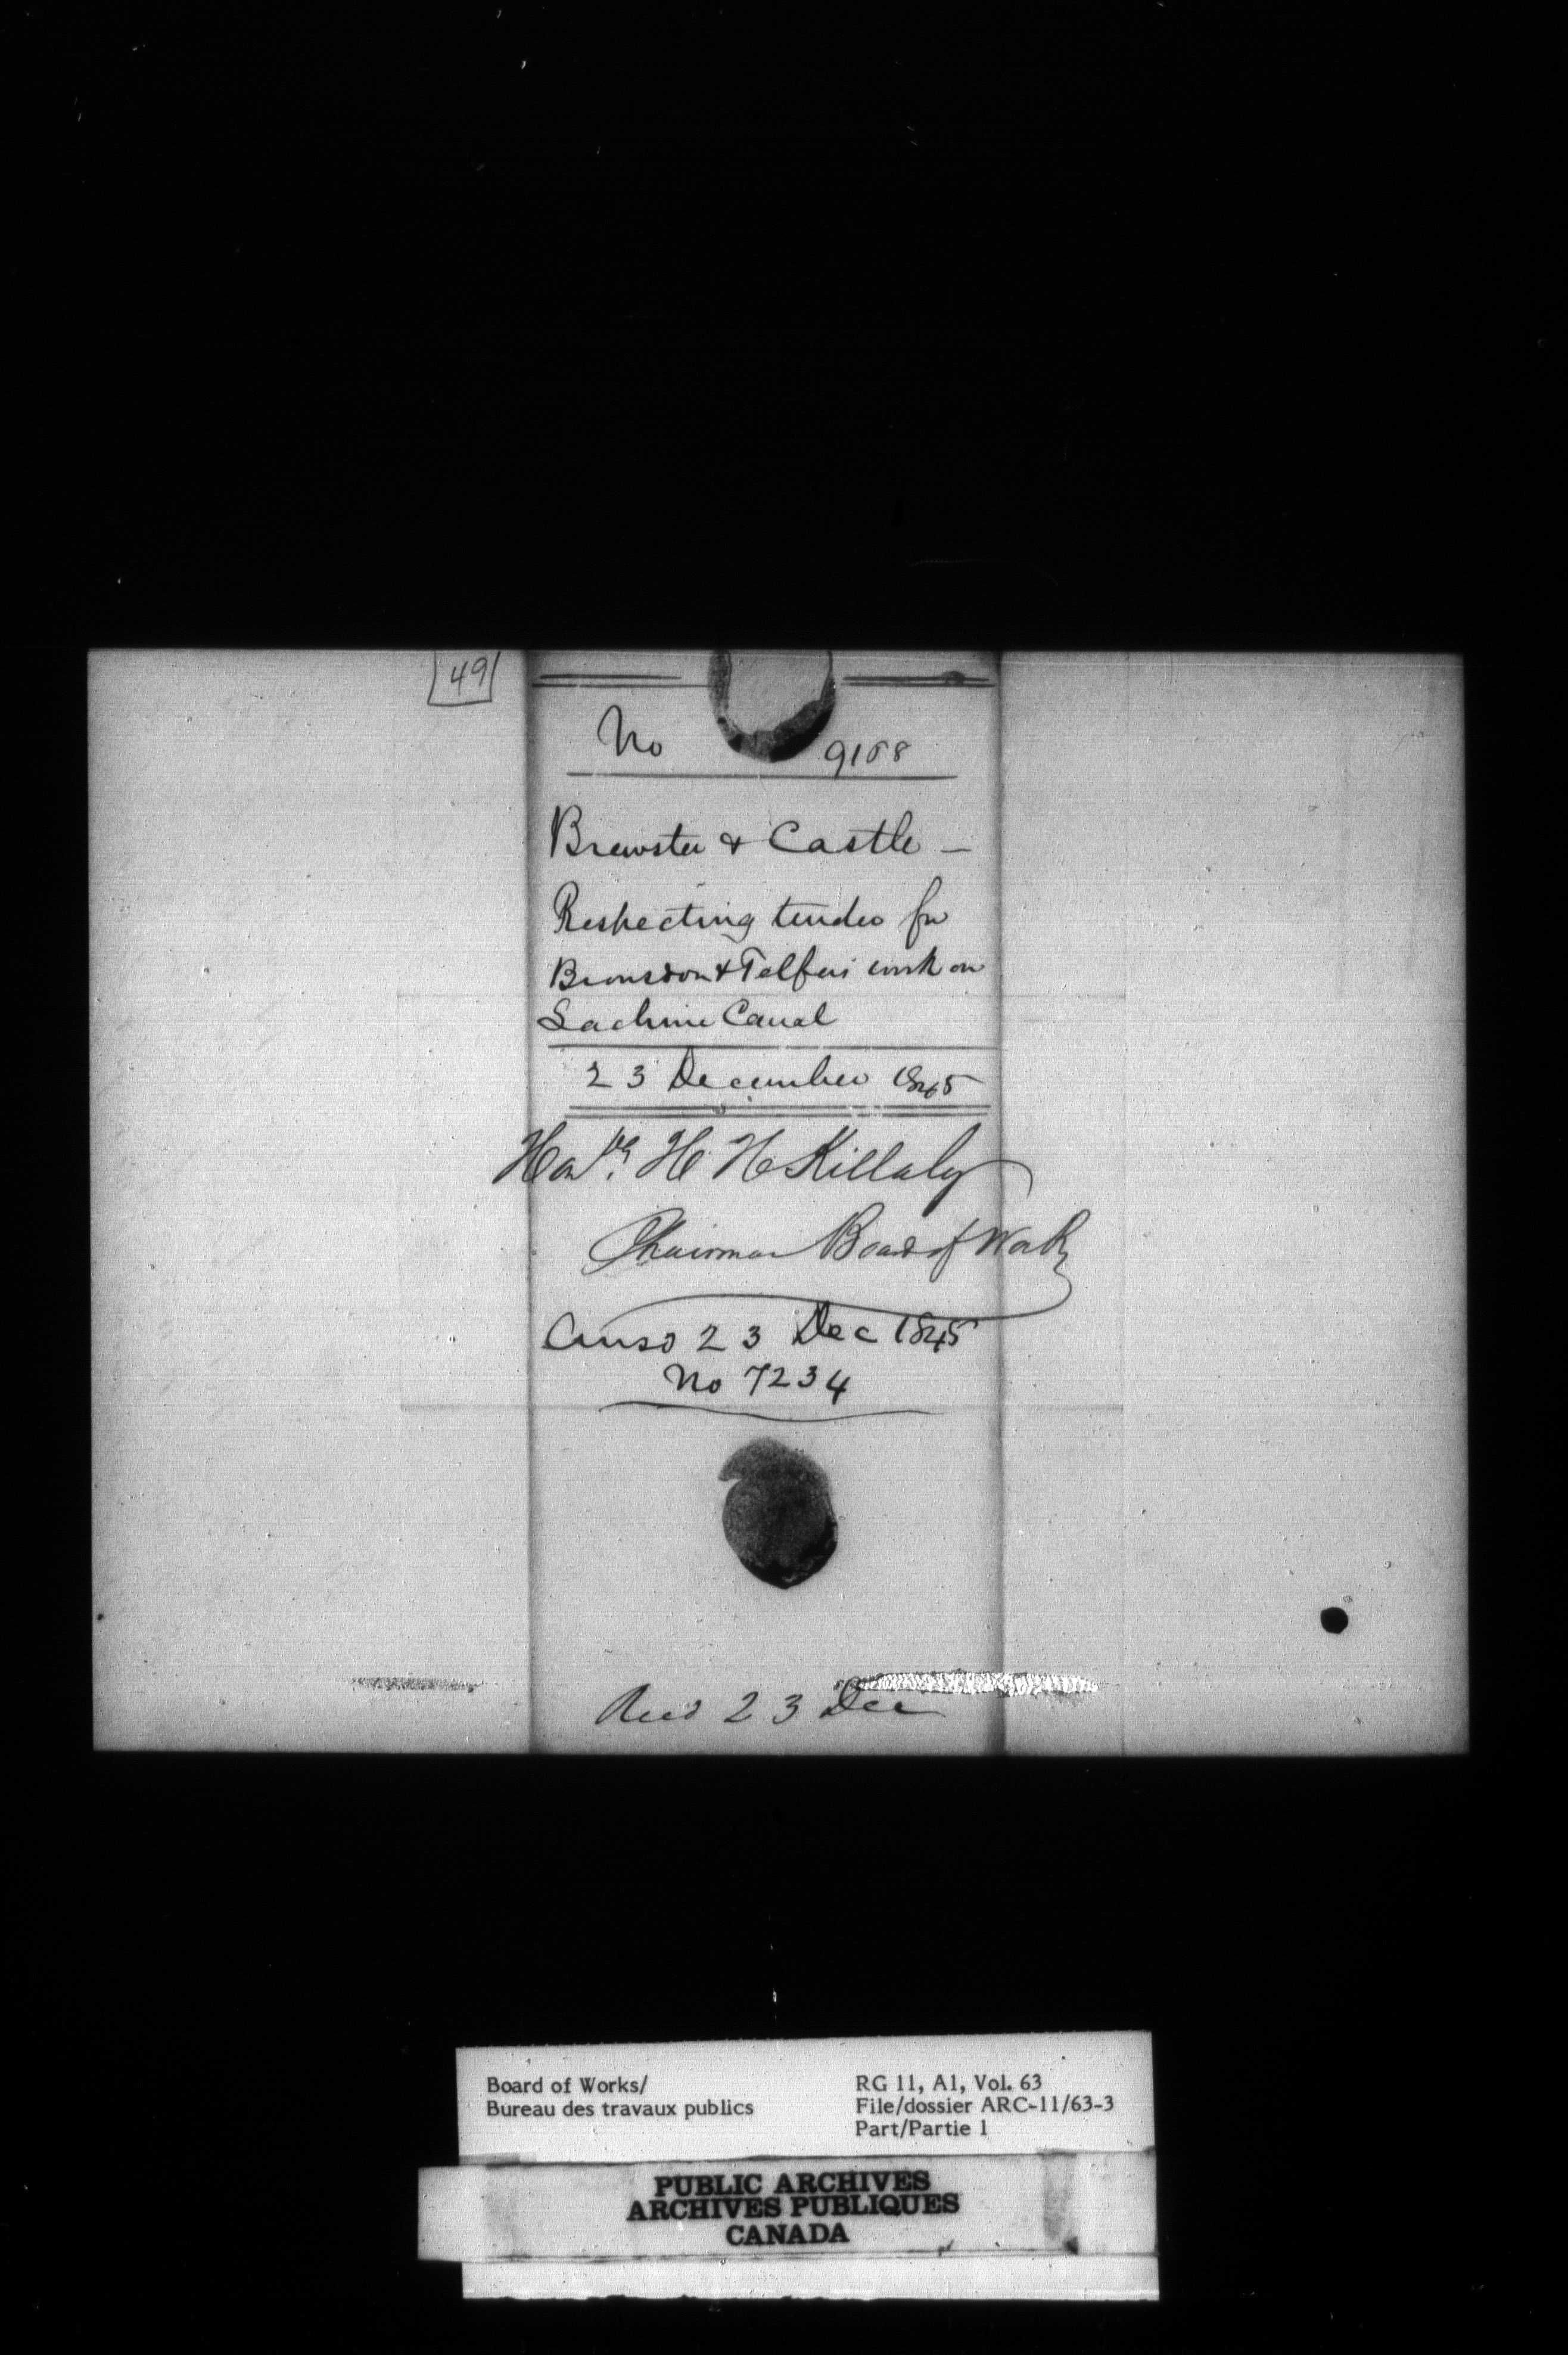 49
No 9158
Brewster & Castle —
Respecting tender for
Bronsdon & Telfers work on
Lachine Canal
23 December 1845
Honble. H H Killaly
Chairman Board of Works
Ansd 23 Dec 1845
No 7234
Recd 23 Dec
Board of Works/
Bureau des travaux publics
RG 11, A1, Vol. 63
File/dossier ARC-11/63-3
Part/Partie 1
PUBLIC ARCHIVES
ARCHIVES PUBLIQUES
CANADA